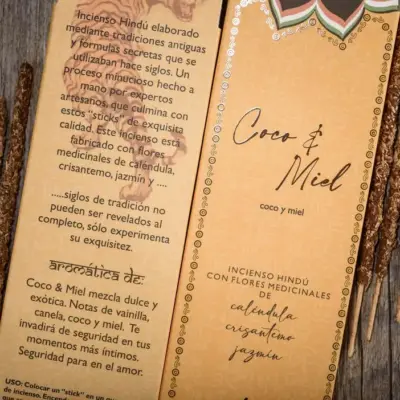 Incienso Hindú elaborado
mediante tradiciones antiguas
y formulas secretas que se
utilizaban hace siglos. Un
proceso minucioso hecho a
mano por expertos
artesanos, que culmina con
estos "sticks" de exquisita
calidad. Este incienso está
fabricado con flores
medicinales de caléndula,
crisantemo, jazmín y ....
.....siglos de tradición no
pueden ser revelados al
completo, sólo experimenta
su exquisitez.
aromática de:
Coco & Miel mezcla dulce y
exótica. Notas de vainilla,
canela, coco y miel. Te
invadirá de seguridad en tus
momentos más íntimos.
Seguridad para en el amor.
USO: Colocar un "stick" en un
de incienso.
Coco &
Miel
coco y miel
INCIENSO HINDÚ
CON FLORES MEDICINALES
DE
caléndula
crisantemo
jazmín